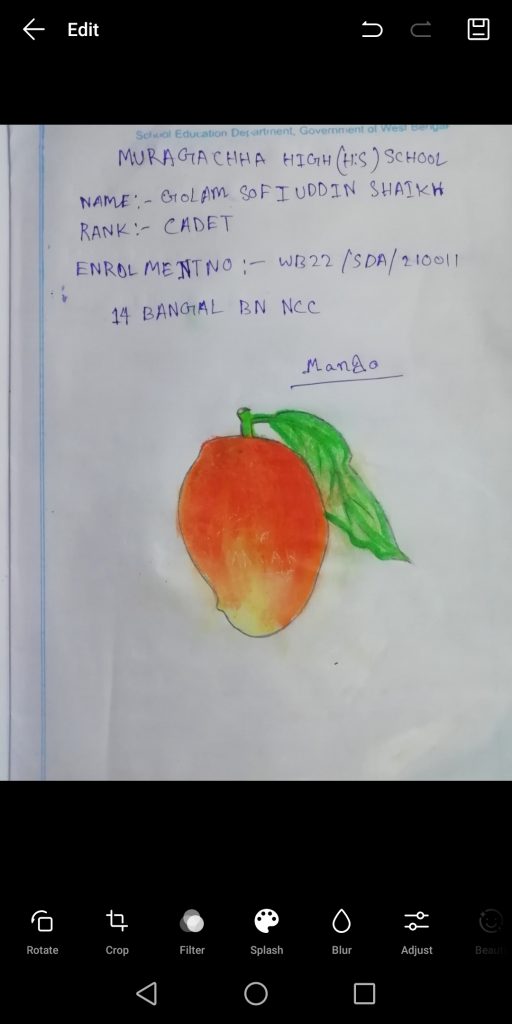 Edit
School Education Department, Government of West Bengal
MURAGACHHA HIGH (H.S) SCHOOL
NAME:- GOLAM SOFIUDDIN SHAIKH
RANK:- CADET
ENROLMENT NO :- WB22/SDA/210011
14 BANGAL BN NCC
Mango
Rotate Crop Filter Splash Blur Adjust